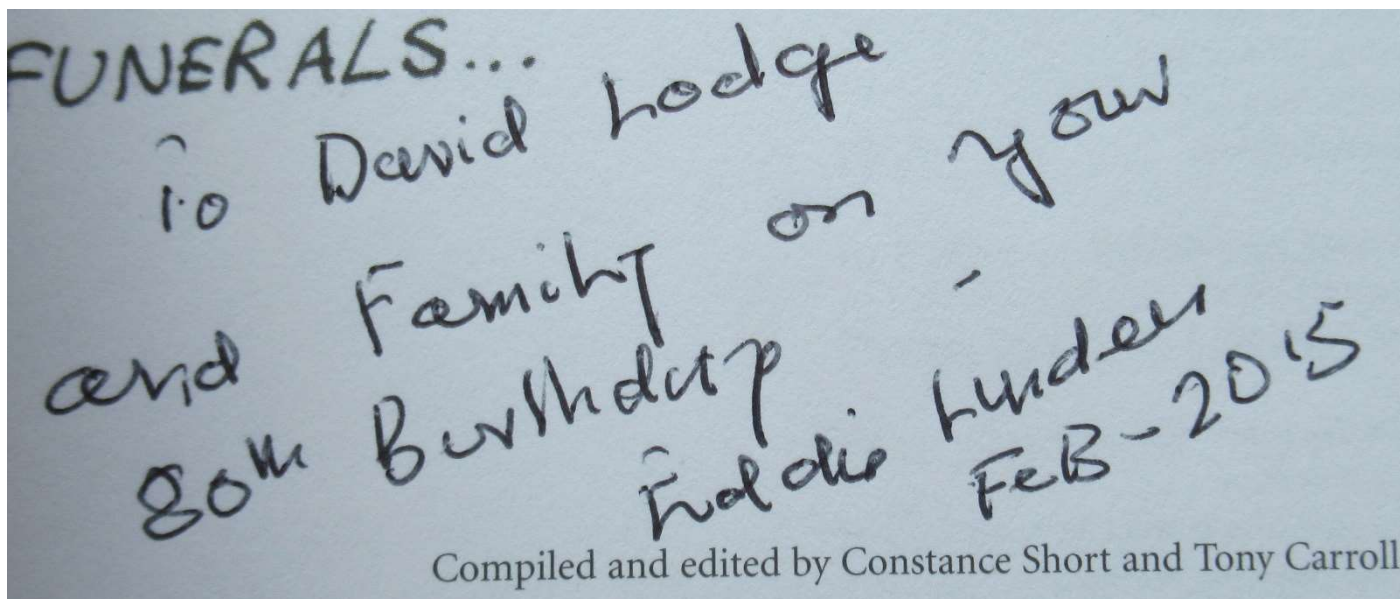 FUNERALS...
To David Lodge
and Family on your
80th Birthday
Eddie Linden
FeB-2015
Compiled and edited by Constance Short and Tony Carroll